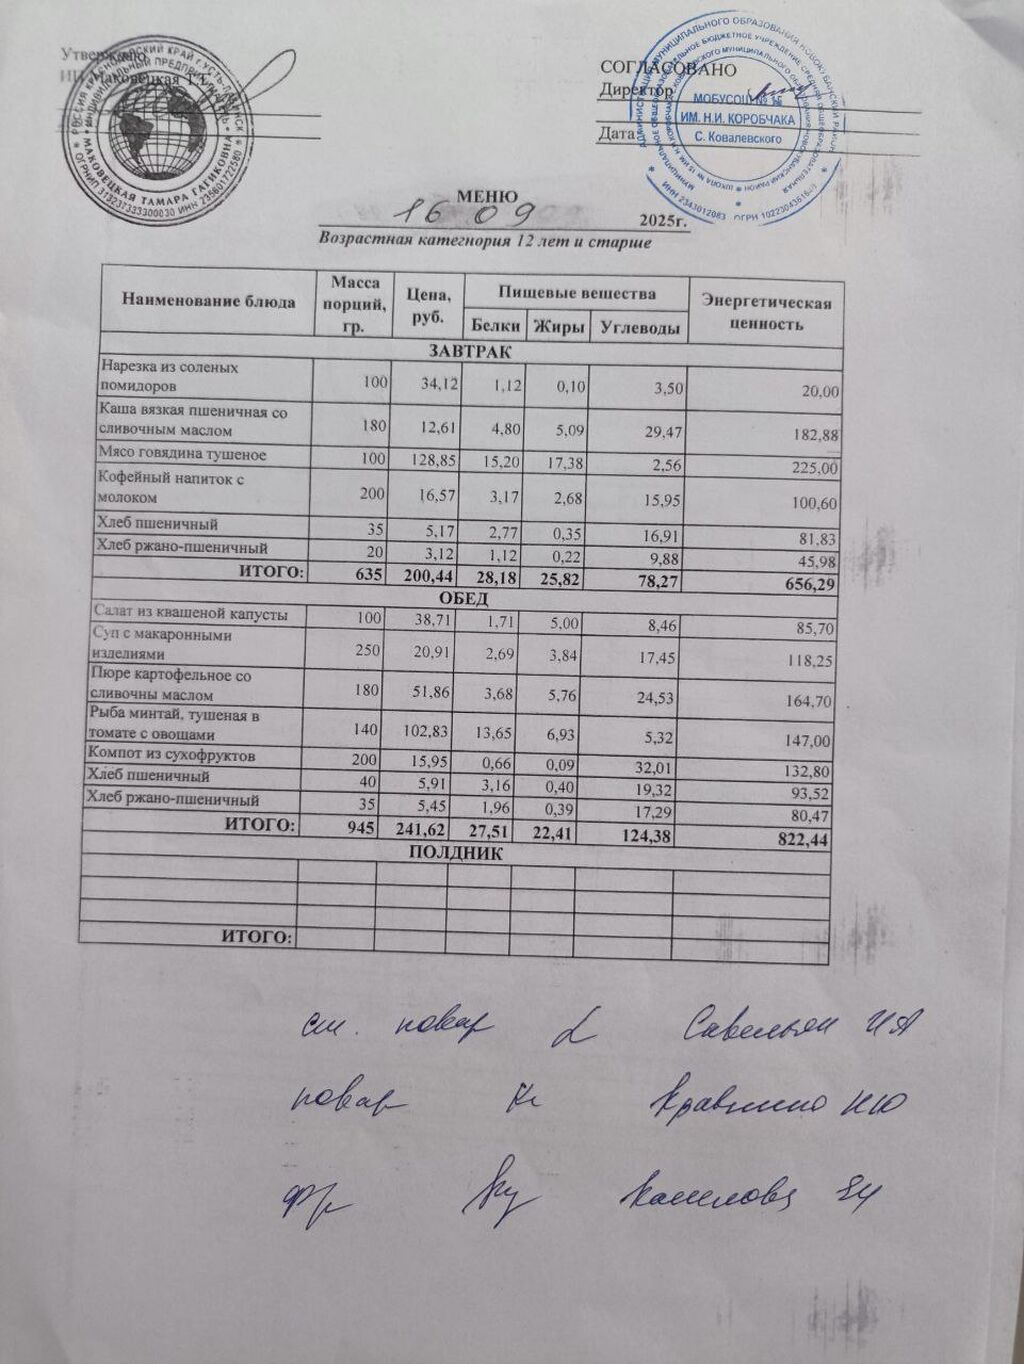 Утверждаю
ИП Маковецкая Т.Г.
РОССИЯ КРАСНОДАРСКИЙ КРАЙ Г. УСТЬ-ЛАБИНСК
ИНДИВИДУАЛЬНЫЙ ПРЕДПРИНИМАТЕЛЬ
МАКОВЕЦКАЯ ТАМАРА ГАГИКОВНА
СОГЛАСОВАНО
Директор
Дата
МОБУСОШ № 16
ИМ. Н.И. КОРОБЧАКА
С. Ковалевского
ИНН 2343012083
МЕНЮ
16 09 2025г.
Возрастная категнория 12 лет и старше
Наименование блюда Масса порций, гр. Цена, руб. Пищевые вешества Энергетическая ценность
Белки Жиры Углеводы
ЗАВТРАК
Нарезка из соленых
помидоров 100 34,12 1,12 0,10 3,50 20,00
Каша вязкая пшеничная со
сливочным маслом 180 12,61 4,80 5,09 29,47 182,88
Мясо говядина тушеное 100 128,85 15,20 17,38 2,56 225,00
Кофейный напиток с
молоком 200 16,57 3,17 2,68 15,95 100,60
Хлеб пшеничный 35 5,17 2,77 0,35 16,91 81,83
Хлеб ржано-пшеничный 20 3,12 1,12 0,22 9,88 45,98
ИТОГО: 635 200,44 28,18 25,82 78,27 656,29
ОБЕД
Салат из квашеной капусты 100 38,71 1,71 5,00 8,46 85,70
Суп с макаронными
изделиями 250 20,91 2,69 3,84 17,45 118,25
Пюре картофельное со
сливочны маслом 180 51,86 3,68 5,76 24,53 164,70
Рыба минтай, тушеная в
томате с овощами 140 102,83 13,65 6,93 5,32 147,00
Компот из сухофруктов 200 15,95 0,66 0,09 32,01 132,80
Хлеб пшеничный 40 5,91 3,16 0,40 19,32 93,52
Хлеб ржано-пшеничный 35 5,45 1,96 0,39 17,29 80,47
ИТОГО: 945 241,62 27,51 22,41 124,38 822,44
ПОЛДНИК
ИТОГО:
повар
повар